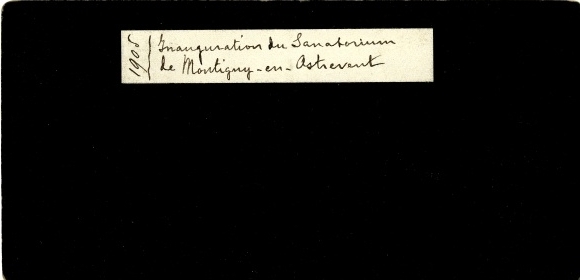 1905
Inauguration du Sanatorium
de Montigny-en-Astrevent